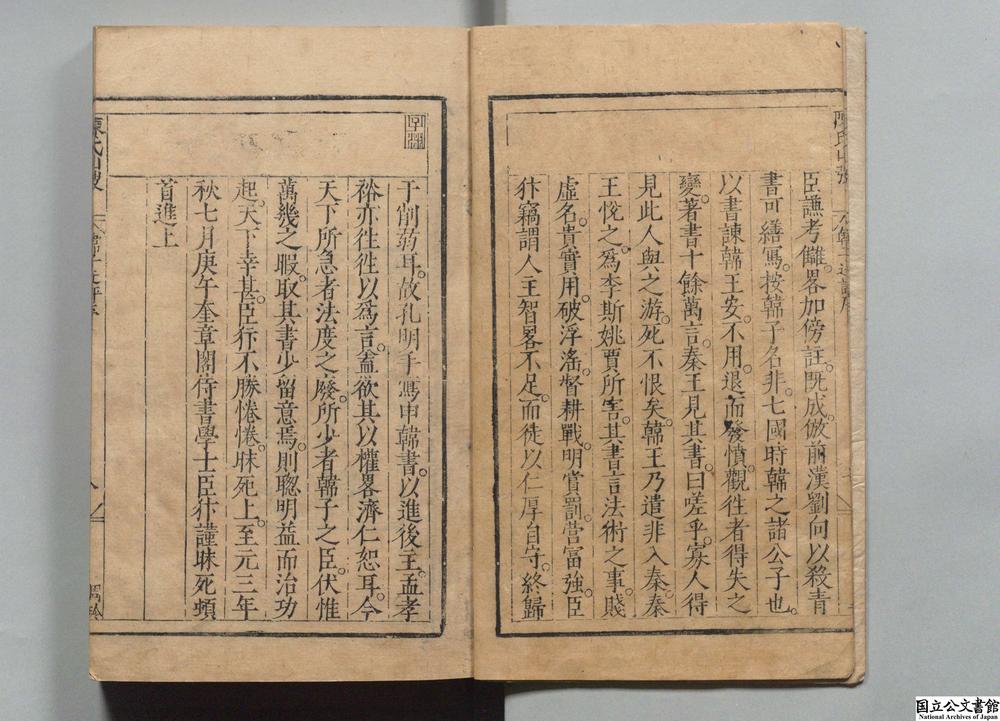 臣謙考讎畧加傍註既成倣前漢劉向以殺青
書可繕寫按韓子名非七國時韓之諸公子也
以書諫韓王安不用退而發憤觀徃者得失之
變著書十餘萬言秦王見其書曰嗟乎寡人得
見此人與之游死不恨矣韓王乃遣非入秦秦
王悅之為李斯姚賈所害其書言法術之事賤
虛名貴實用破浮滛督耕戰明賞罰營富強臣
犿竊謂人主智畧不足而徒以仁厚自守終歸
于削弱耳故孔明手寫申韓書以進後主孟孝
裕亦徃徃以為言盖欲其以權畧濟仁恕耳今
天下所急者法度之廢所少者韓子之臣伏惟
萬幾之暇取其書少留意焉則聰明益而治功
起天下幸甚臣犿不勝惓惓昧死上至元三年
秋七月庚午奎章閣侍書學士臣犿謹昧死頓
首進上
陳氏
八
国立公文書館
National Archives of Japan